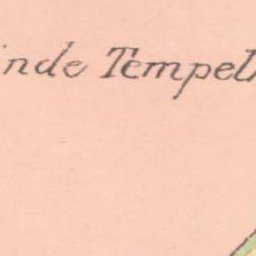 inde Tempel